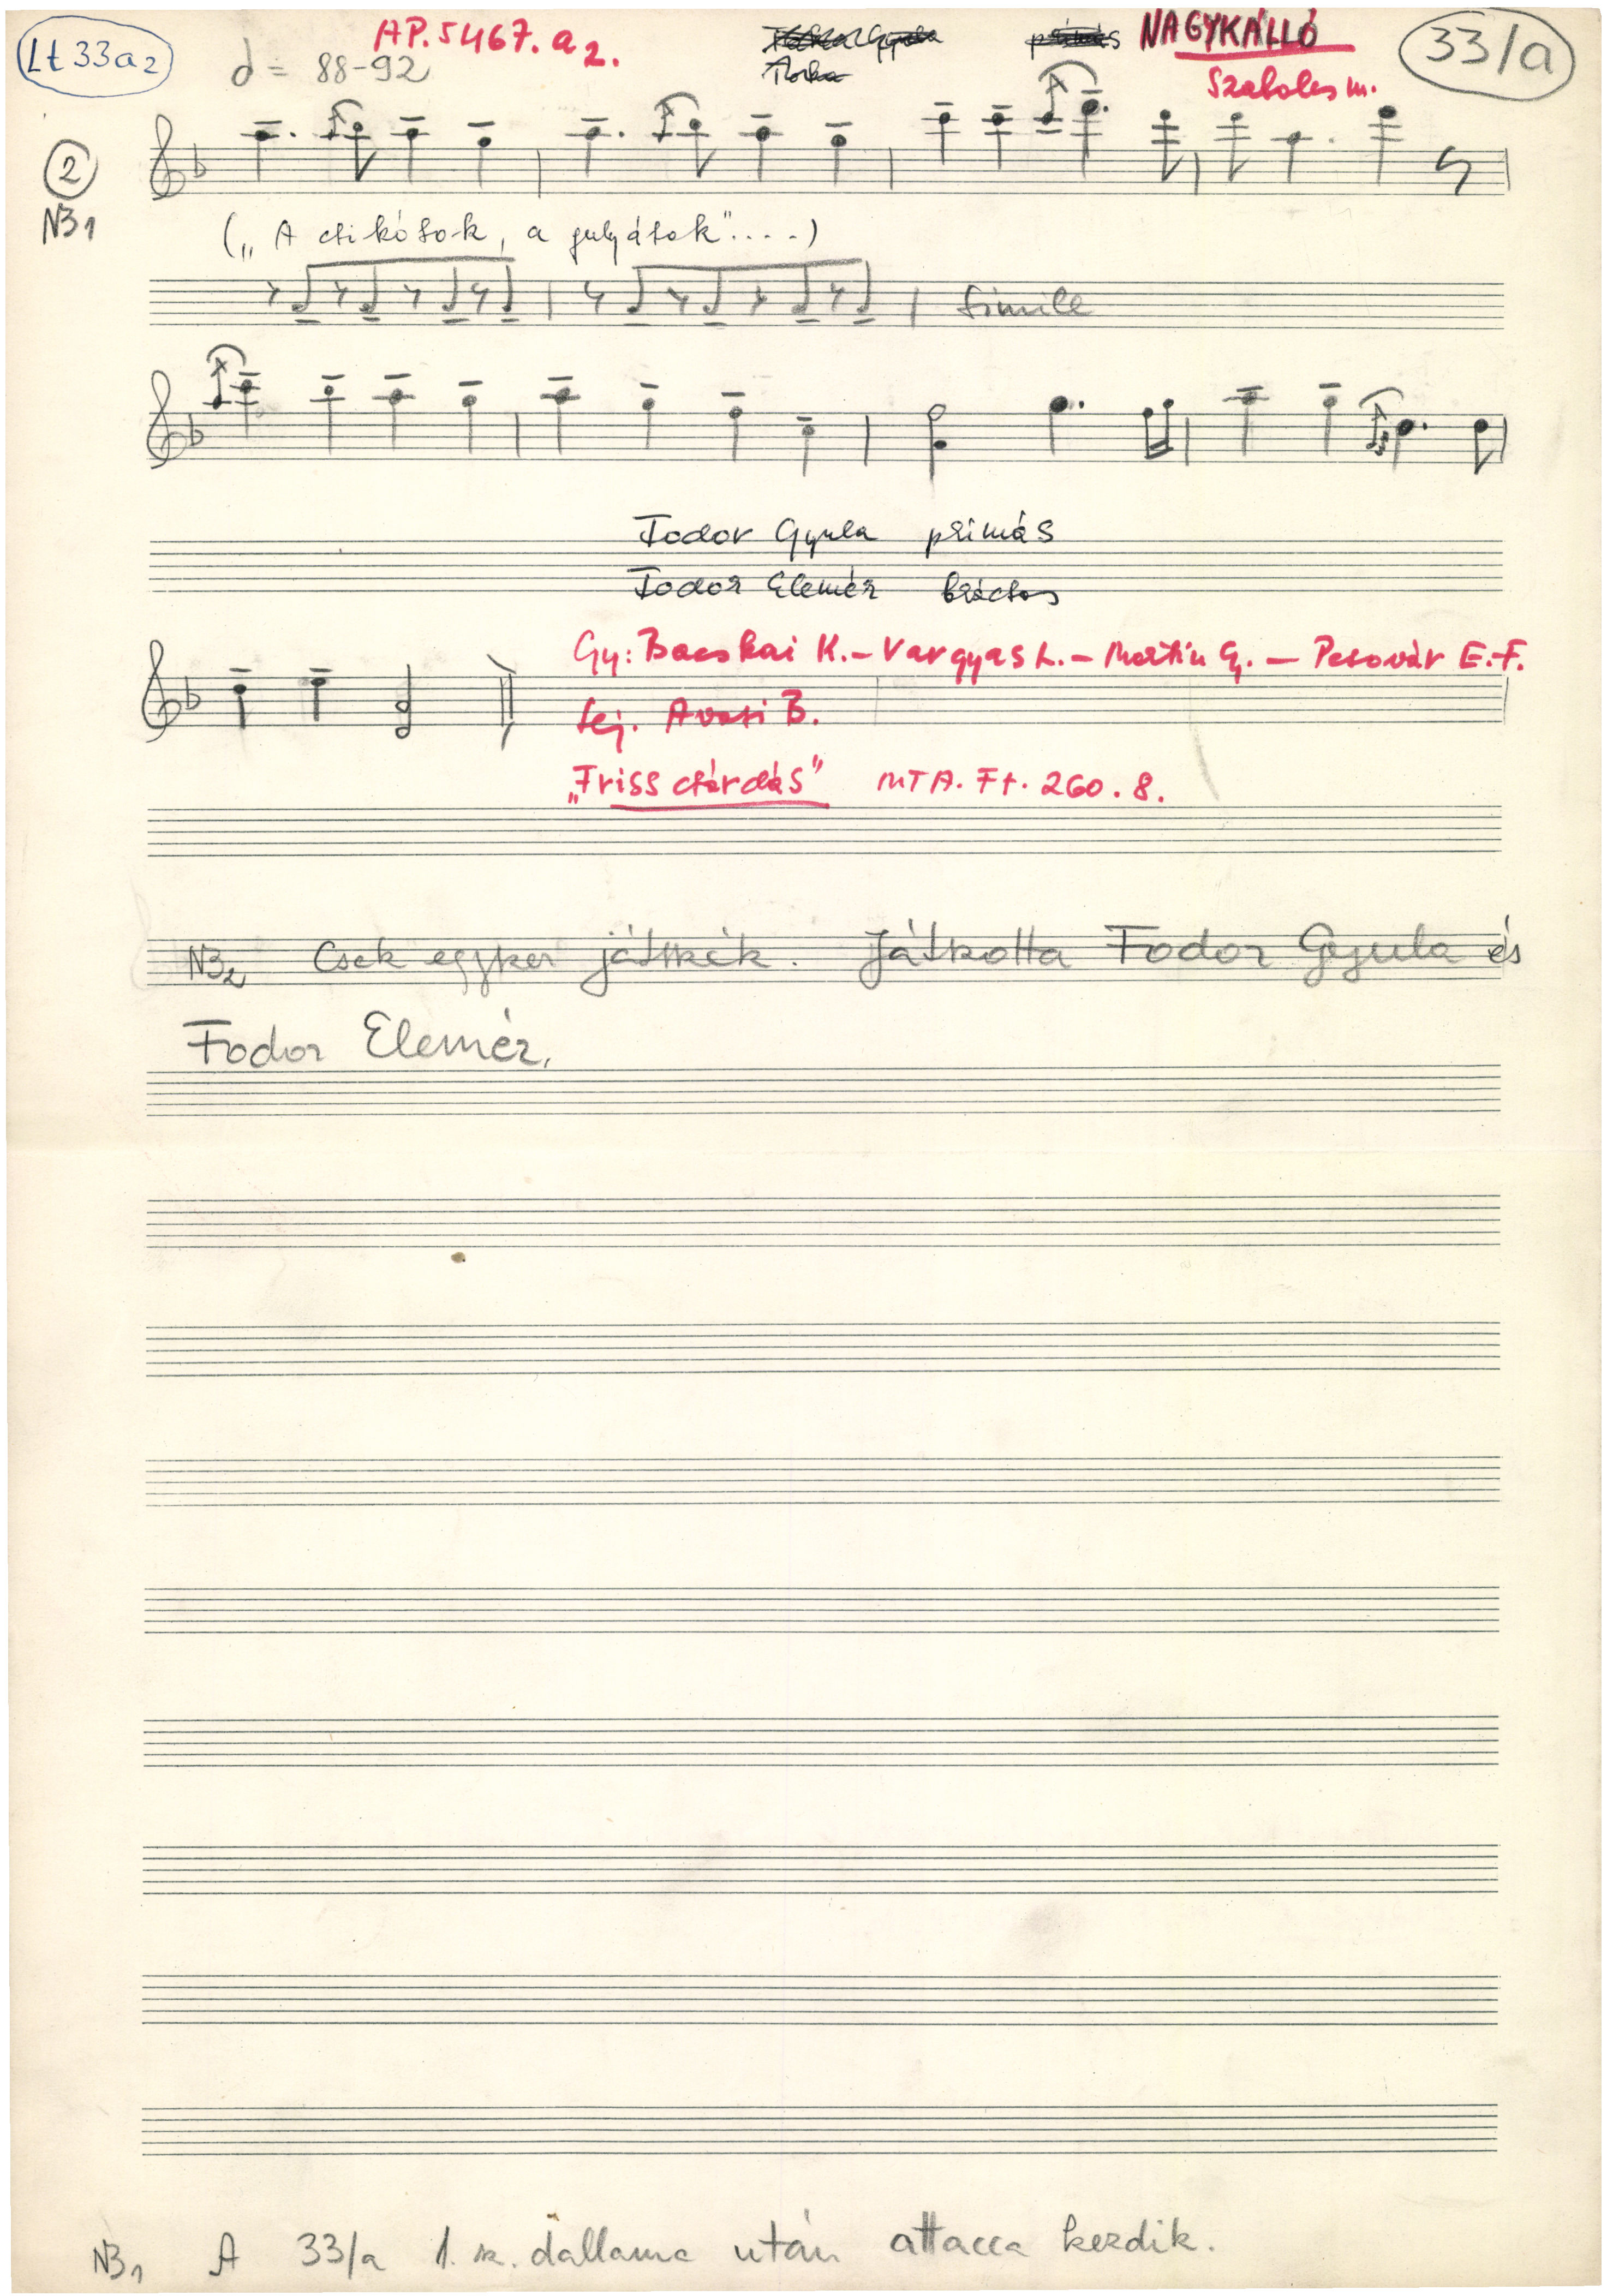 Lt 33a2
AP. 5467. a 2.
NAGYKÁLLÓ
33/a
= 88-92
Szabolcs m.
2
NB1
(„A csikósok, a gulyások"....)
simile
Fodor Gyula prímás
Fodor Elemér brácsos
Gy: Bacskai K. – Vargyas L. – Martin Gy. – Pesovár E.-F.
Lej. Avasi B.
„Friss csárdás" MTA. Ft. 260. 8.
NB2 Csak egyszer játszák. Játszotta Fodor Gyula és
Fodor Elemér.
NB1 A 33/a 1. sz. dallama után attacca kezdik.